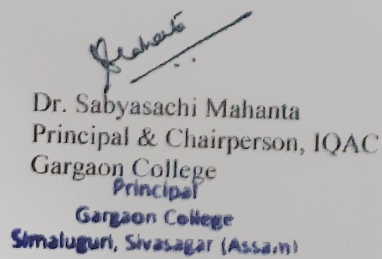 Mahanta
Dr. Sabyasachi Mahanta
Principal & Chairperson, IQAC
Gargaon College
Principal
Gargaon College
Simaluguri, Sivasagar (Assam)